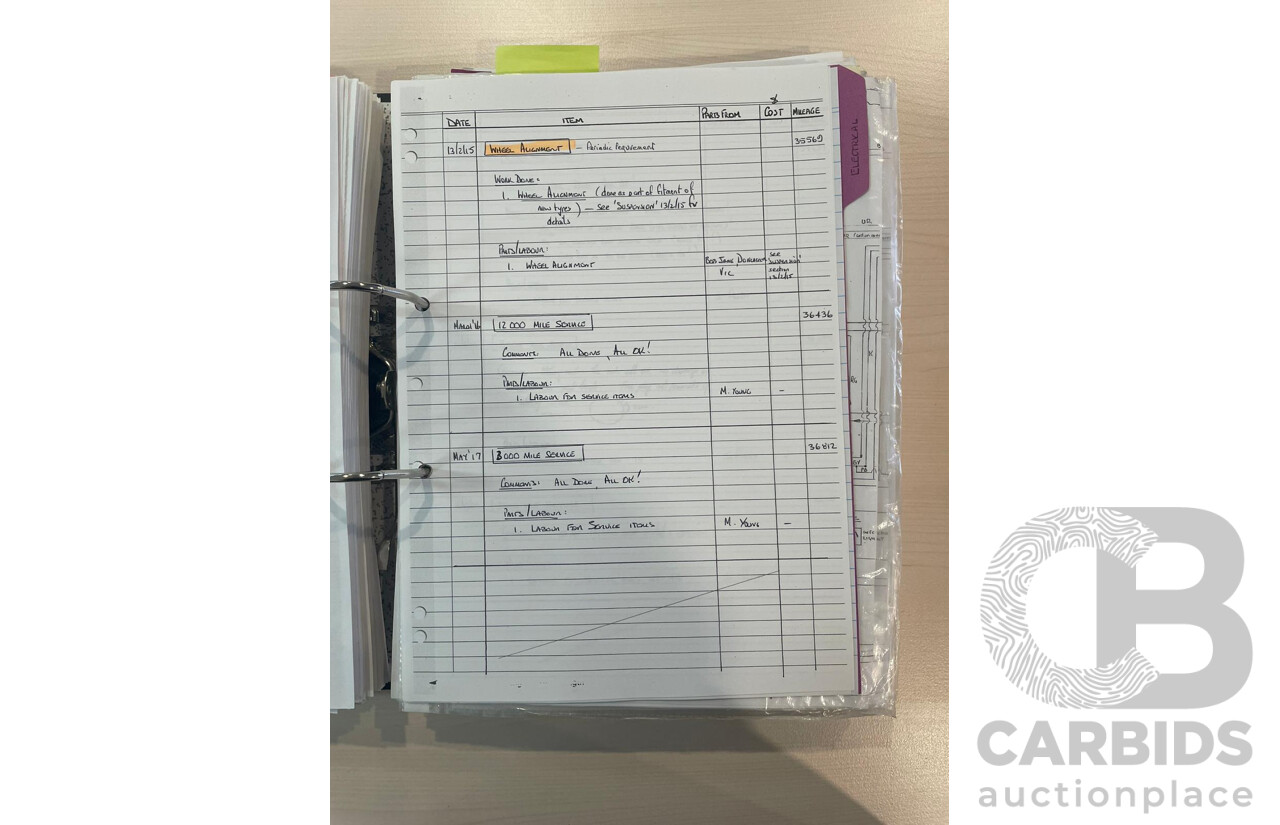 DATE ITEM PARTS FROM $ COST MILEAGE
13/2/15 WHEEL ALIGNMENT - Periodic requirement 35569
WORK DONE:
1. WHEEL ALIGNMENT (done as part of fitment of
new tyres) - SEE 'SUSPENSION' 13/2/15 for
details
PARTS/LABOUR:
1. WHEEL ALIGNMENT BOB JANE, VIC see 'SUSPENSION' section 13/2/15
12 000 MILE SERVICE 36436
COMMENTS: ALL DONE, ALL OK!
PARTS/LABOUR:
1. LABOUR FOR SERVICE ITEMS M. YOUNG -
MAY '17 3000 MILE SERVICE 36812
COMMENTS: ALL DONE, ALL OK!
PARTS/LABOUR:
1. LABOUR FOR SERVICE ITEMS M. YOUNG -
ELECTRICAL
CB
CARBIDS
auctionplace